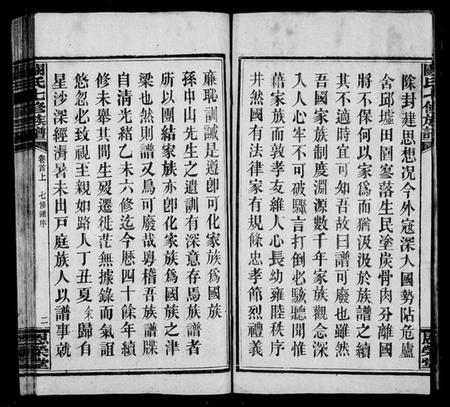 關氏七修族譜
除封建思想况今外寇深入國勢阽危廬
舍邱墟田園寥落生民塗炭骨肉分離國
將不保何以家爲而猶汲汲於族譜之續
其不適時宜可知吾故曰譜可廢也雖然
吾國家族制度淵源數千年家族觀念深
入人心牢不可破驟言打倒必駭聽聞惟
藉家族而敦孝友維人心長幼雍睦秩序
井然國有法律家有規條忠孝節烈禮義
廉恥訓誡是遵卽可化家族爲國族
孫中山先生之遺訓有深意存焉族譜者
所以團結家族亦卽化家族爲國族之津
梁也然則譜又烏可廢哉粤稽吾族譜牒
自清光緒乙未六修迄今歷四十餘年續
修未舉其間生殁遷徙茫無據錄而氣誼
悠忽必致視至親如路人丁丑夏余歸自
星沙深經濟暑未出戶庭族人以譜事就
關氏七修族譜
卷首上
七修譜序
二